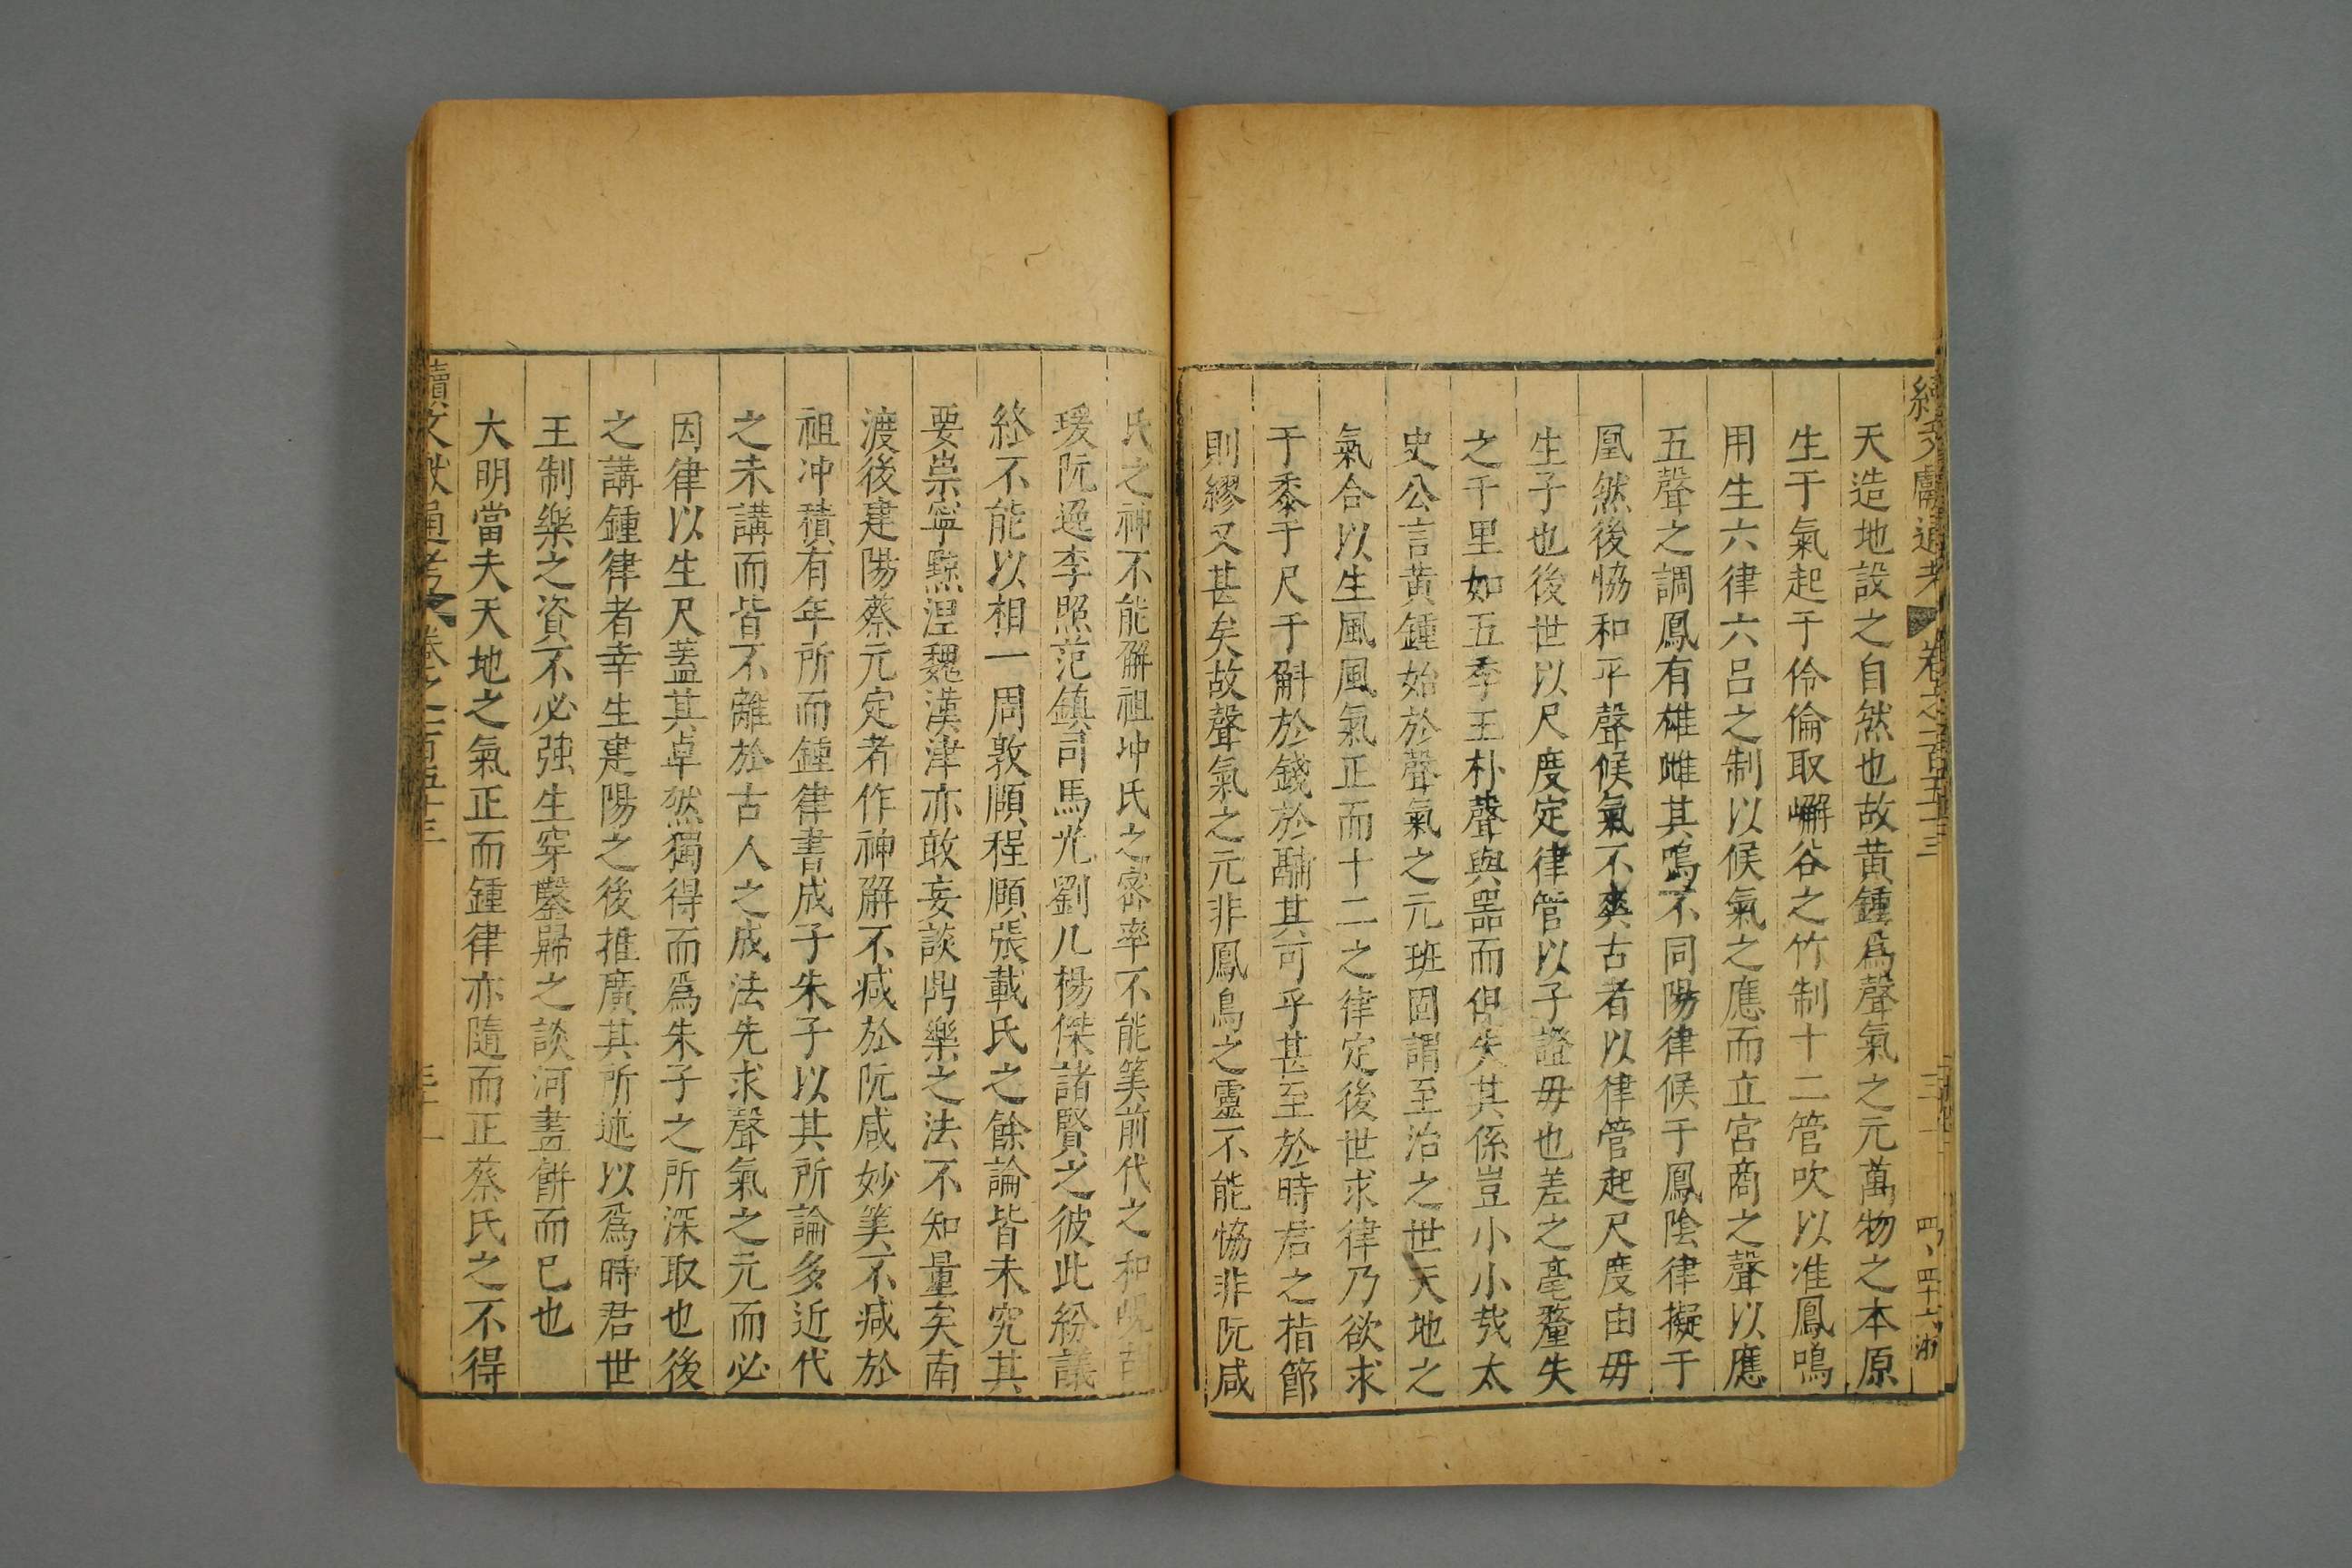 續文獻通考 卷之一百五十三
天造地設之自然也故黃鍾爲聲氣之元萬物之本原
生于氣起于伶倫取嶰谷之竹制十二管吹以准鳳鳴
用生六律六呂之制以候氣之應而立宮商之聲以應
五聲之調鳳有雄雌其鳴不同陽律候于鳳陰律擬于
凰然後恊和平聲候氣不爽古者以律管起尺度由毋
生子也後世以尺度定律管以子證毋也差之毫釐失
之千里如五季王朴聲與器而俱失其係豈小小哉太
史公言黃鍾始於聲氣之元班固謂至治之世天地之
氣合以生風風氣正而十二之律定後世求律乃欲求
于黍于尺于斛於錢於酺其可乎甚至於時君之指節
則繆又甚矣故聲氣之元非鳳鳥之靈不能恊非阮咸
氏之神不能觧祖冲氏之密率不能筭前代之和峴胡
瑗阮逸李照范鎮司馬光劉几楊傑諸賢之彼此紛議
終不能以相一周敦頤程頤張載氏之餘論皆未究其
要崇寧黥涅魏漢津亦敢妄談鼎樂之法不知量矣南
渡後建陽蔡元定者作神觧不减於阮咸妙筭不减於
祖冲積有年所而鍾律書成子朱子以其所論多近代
之未講而皆不離於古人之成法先求聲氣之元而必
因律以生尺蓋其卓然獨得而爲朱子之所深取也後
之講鍾律者幸生建陽之後推廣其所述以爲時君世
王制樂之資不必强生穿鑿歸之談河畵餅而已也
大明當夫天地之氣正而鍾律亦隨而正蔡氏之不得
續文獻通考 卷之一百五十三